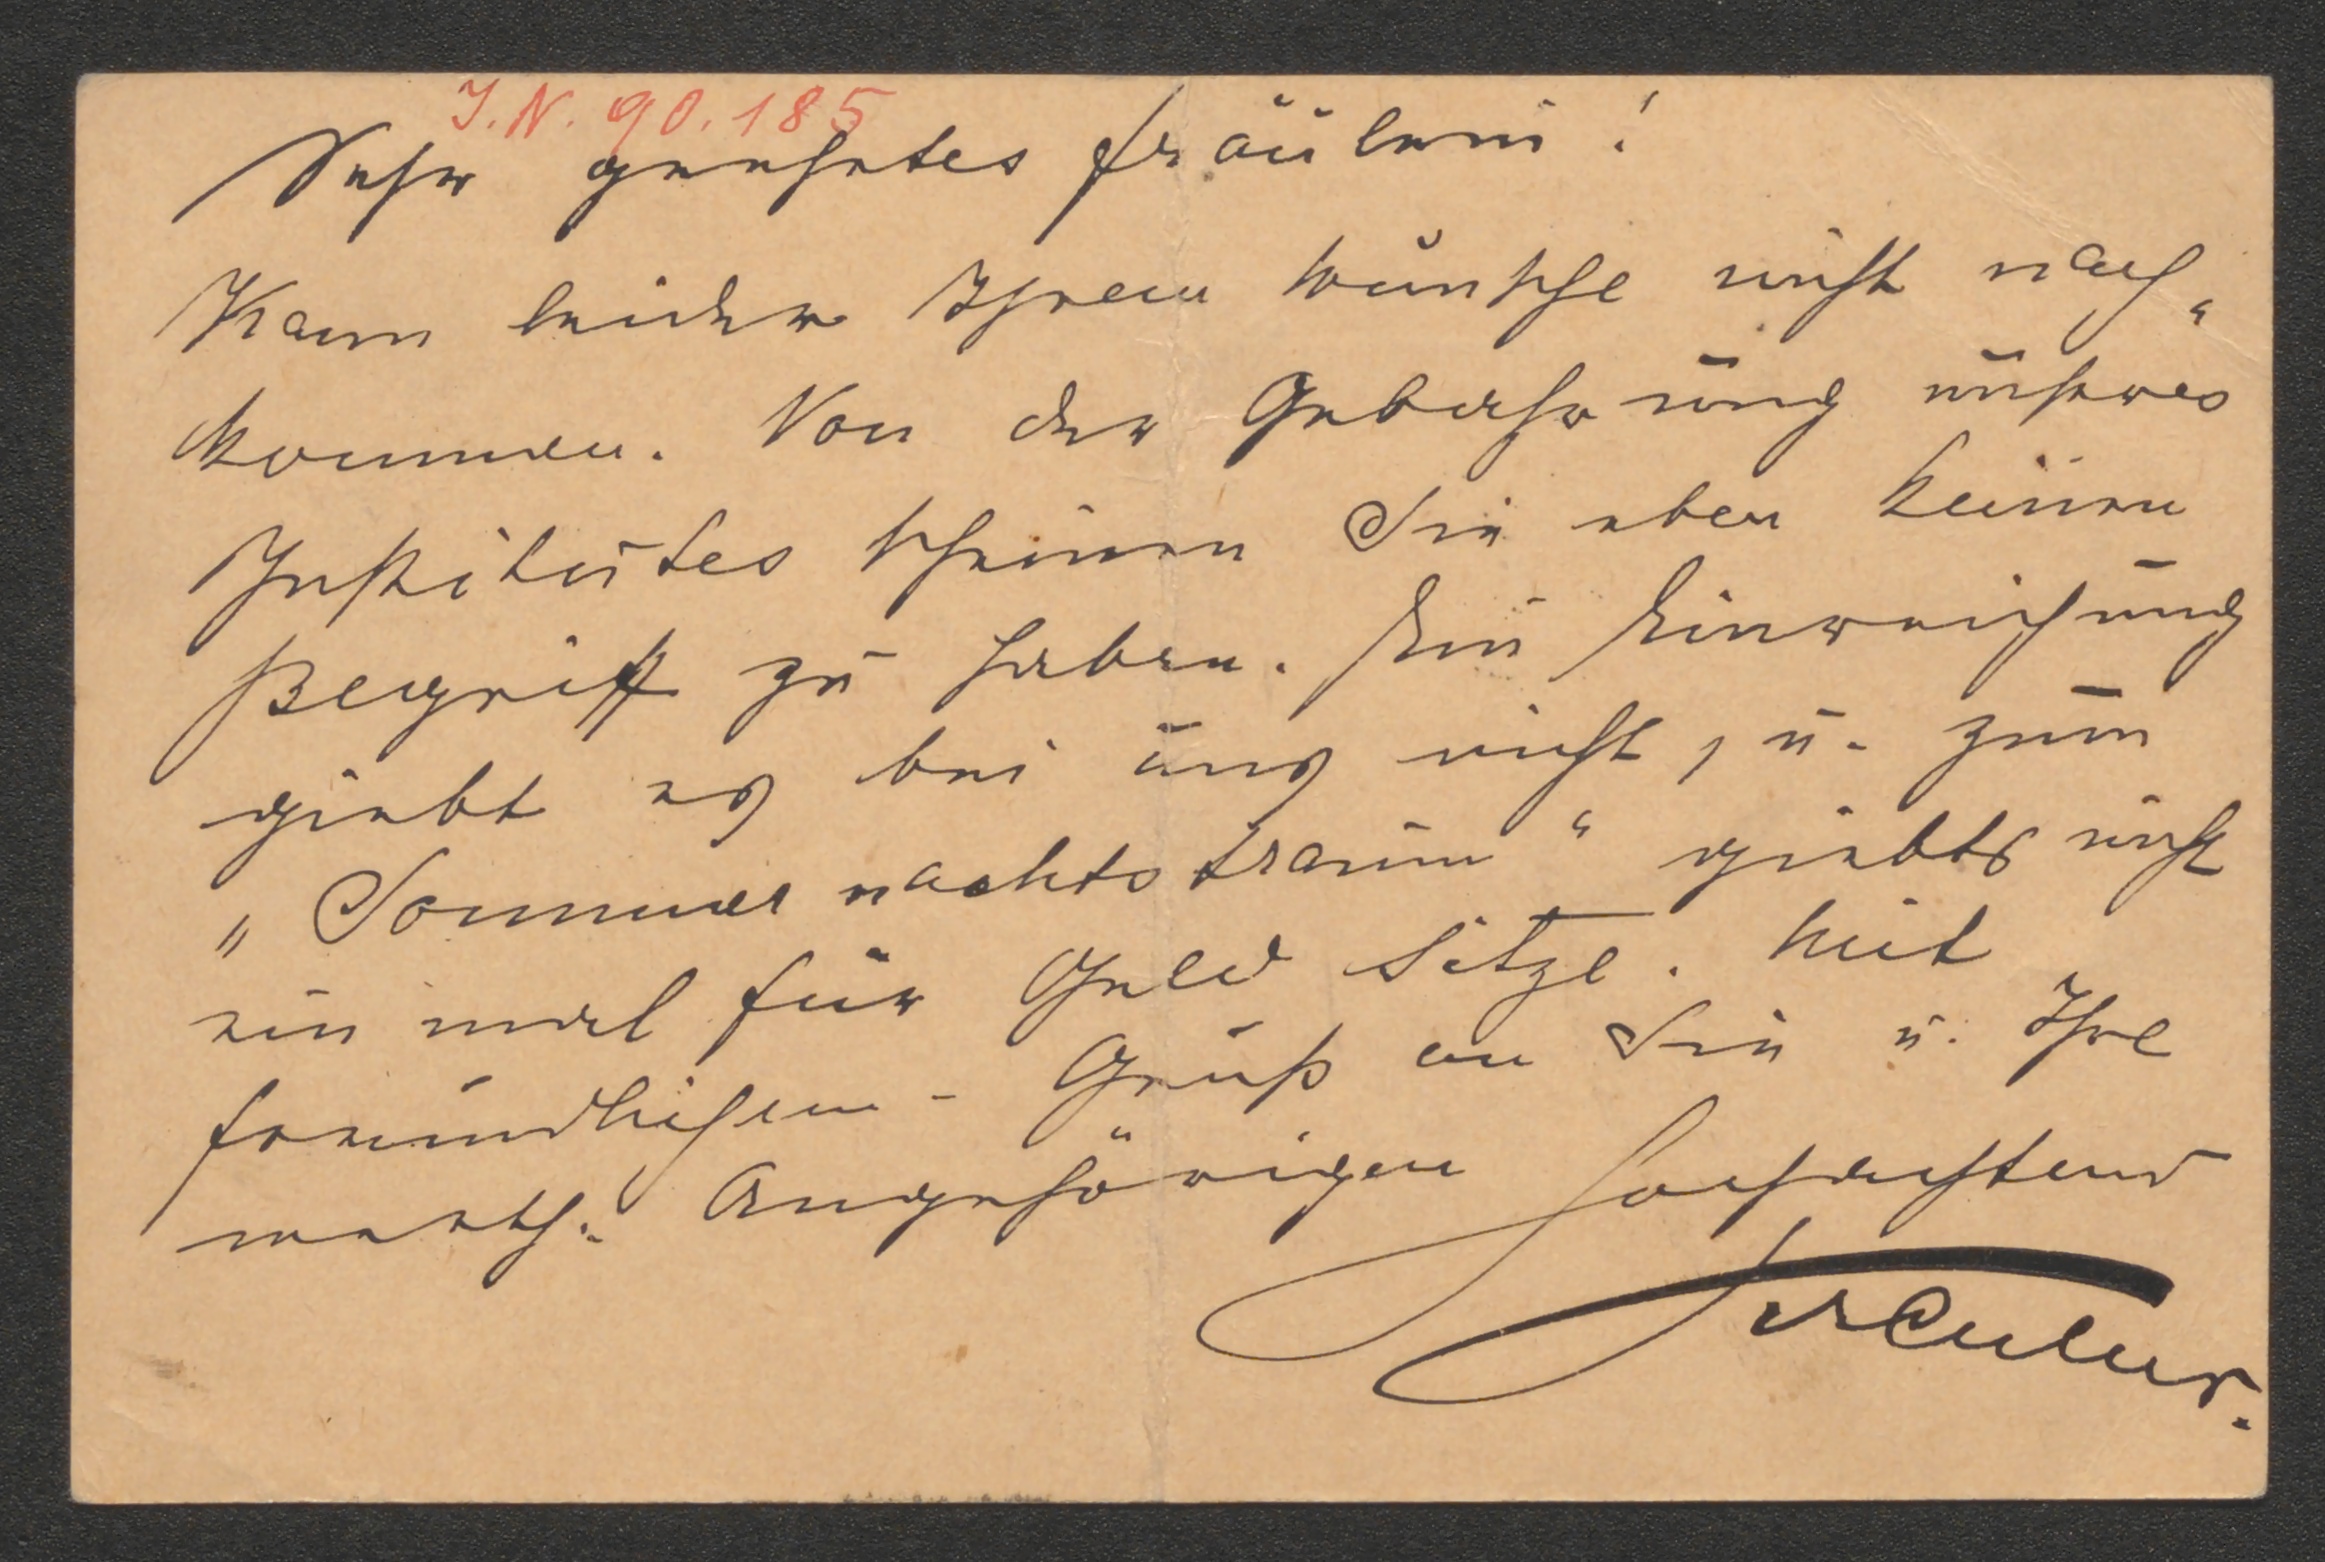 I.N. 90.185
Sehr geehrtes Fräulein!
Kann leider Ihrem Wunsche nicht nach„
kommen. Von der Gebahrung unseres
Institutes scheinen Sie eben keinen
Begriff zu haben. Ein Einreichung
giebt es bei uns nicht, u. zum
„Sommernachtstraum“ giebts nicht
ein mal für Geld Sitze. Mit
freundlichem Gruß an Sie u. Ihre
werth. Angehörigen hochachtend